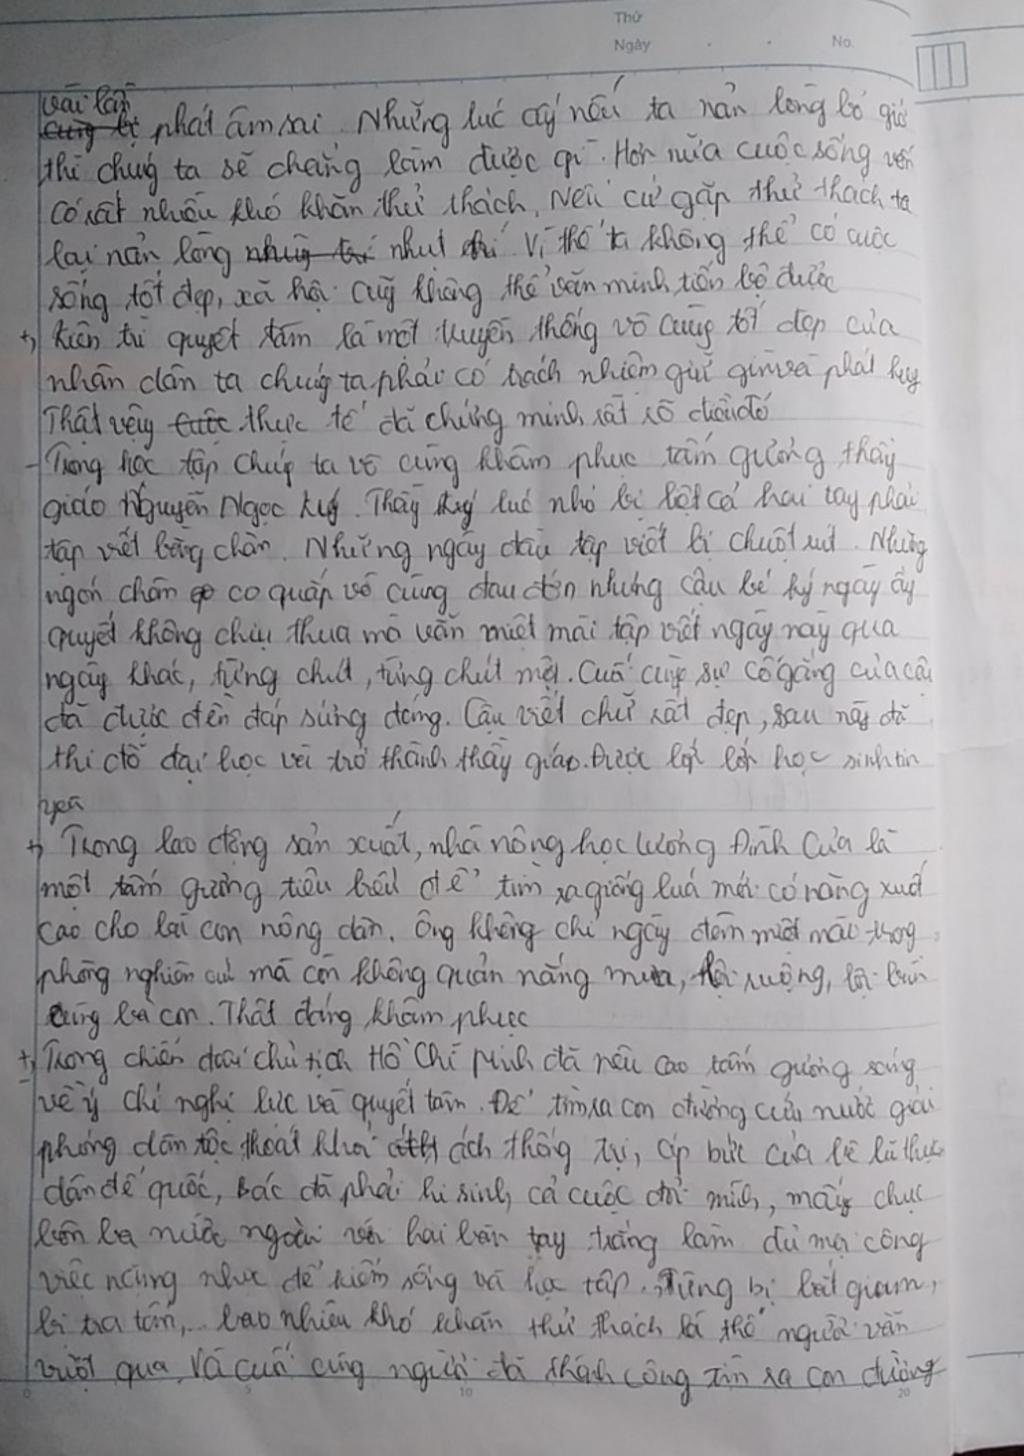 Thứ
Ngày . . No.
vài lần
phát âm sai. Những lúc ấy nếu ta nản lòng bỏ giở
thì chúng ta sẽ chẳng làm được gì. Hơn nữa cuộc sống vốn
có rất nhiều khó khăn thử thách. Nếu cứ gặp thử thách ta
lại nản lòng như thế Vì thế ta không thể có cuộc
sống tốt đẹp, xã hội cũg không thể văn minh tiến bộ được
+, kiên trì quyết tâm là một truyền thống vô cùng tốt đẹp của
nhân dân ta chúng ta phải có trách nhiệm giữ gìn và phát huy
Thật vậy thực tế đã chứng minh rất rõ điều đó
- Trong học tập chúg ta vô cùng khâm phục tấm gương thầy
giáo Nguyễn Ngọc Ký. Thầy Ký lúc nhỏ bị liệt cả hai tay phải
tập viết bằng chân. Những ngày đầu tập viết bị chuột rút. Những
ngón chân co quắp vô cùng đau đớn nhưng cậu bé Ký ngày ấy
quyết không chịu thua mà vẫn miệt mài tập viết ngày này qua
ngày khác, từng chút, từng chút một. Cuối cùng sự cố gắng của cậu
đã được đền đáp xứng đáng. Cậu viết chữ rất đẹp, sau này đã
thi đỗ đại học và trở thành thầy giáo. Được lớp lớp học sinh tin
yêu
+, Trong lao động sản xuất, nhà nông học Lương Đình Của là
một tấm gương tiêu biểu để tìm ra giống luá mới có năng xuất
cao cho bà con nông dân. Ông không chỉ ngày đêm miệt mài trong
phòng nghiên cứu mà còn không quản nắng mưa, lội ruộng, lội bùn
cùng bà con. Thật đáng khâm phục
+, Trong chiến đấu chủ tịch Hồ Chí Minh đã nêu cao tấm gương sáng
về ý chí nghị lực và quyết tâm. Để tìm ra con đường cứu nước giải
phóng dân tộc thoát khỏi ách thống trị, áp bức của bè lũ thực
dân đế quốc, Bác đã phải hi sinh cả cuộc đời mình, mấy chục
bôn ba nước ngoài với hai bàn tay trắng làm đủ mọi công
việc nặng nhọc để kiếm sống và học tập. Từng bị bắt giam,
bị tra tấn,... bao nhiêu khó khăn thử thách là thế người vẫn
vượt qua, Và cuối cùng người đã thành công tìm ra con đường
0 5 10 20